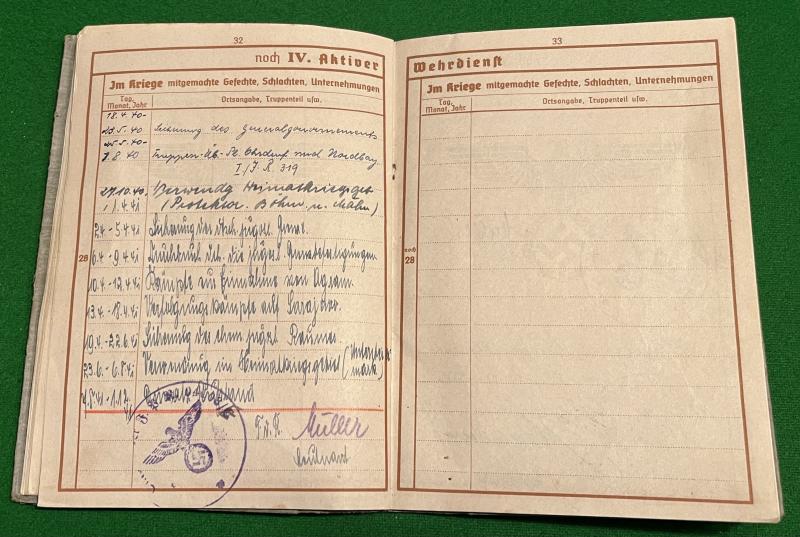 32
noch IV. Aktiver
Im Kriege mitgemachte Gefechte, Schlachten, Unternehmungen
Tag, Monat, Jahr
Ortsangabe, Truppenteil usw.
18.4.40-
23.5.40 Sicherung des Generalgouvernements
25.5.40-
7.8.40 Truppen-Üb-Pl. Ohrdruf und Nordbay.
I/J.R. 319
27.10.40,
1.4.41 Verwendg Heimatkriegsgeb
(Protektor. Böhm. u. Mähr)
2.4.-5.4.41 Sicherung der jugosl. Grenze.
28
6.4.-9.4.41 Durchbruch durch die jugosl. Grenzbefestigungen
10.4.-12.4.41 Kämpfe u Einnahme von Agram.
13.4.-18.4.41 Verfolgungskämpfe auf Sarajewo.
19.4.-22.6.41 Sicherung des ehem. jugosl. Raumes.
23.6.-6.8.41 Verwendung im Heimatkriegsgebiet (Untersteiermark)
F.d.R. Müller
Leutnant
33
Wehrdienst
Im Kriege mitgemachte Gefechte, Schlachten, Unternehmungen
Tag, Monat, Jahr
Ortsangabe, Truppenteil usw.
noch
28